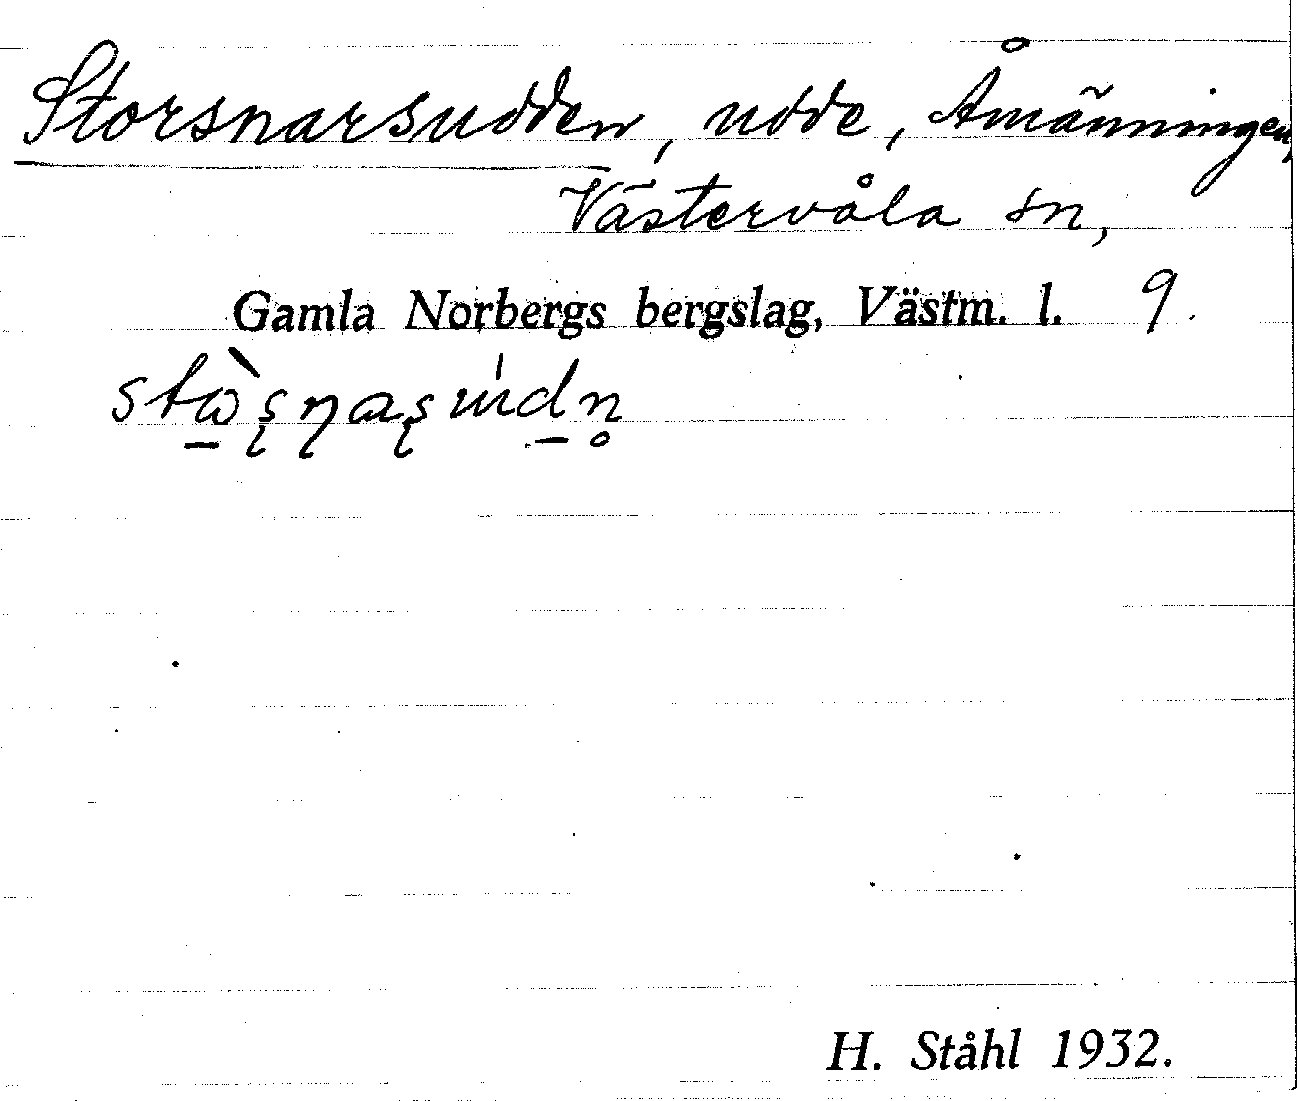 Storsnarsudden, udde, Åmänningen,
Västervåla sn,
Gamla Norbergs bergslag, Västm. l. 9.
H. Ståhl 1932.